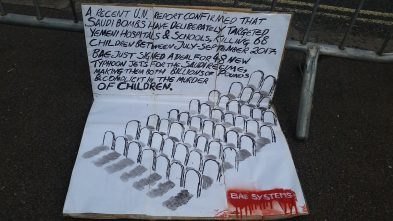 A RECENT U.N. REPORT CONFIRMED THAT
SAUDI BOMBS HAVE DELIBERATELY TARGETED
YEMEN HOSPITALS & SCHOOLS, KILLING 68
CHILDREN BETWEEN JULY-SEPTEMBER 2017.
BAE JUST SIGNED A DEAL FOR 48 NEW
TYPHOON JETS FOR THE SAUDI REGIME,
MAKING THEM BOTH BILLIONS OF POUNDS
& COMPLICIT IN THE MURDER
OF CHILDREN.
BAE SYSTEMS